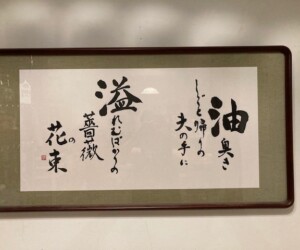 油臭き
しごと帰りの
夫の手に
溢
れむばかりの
薔薇
の
花束